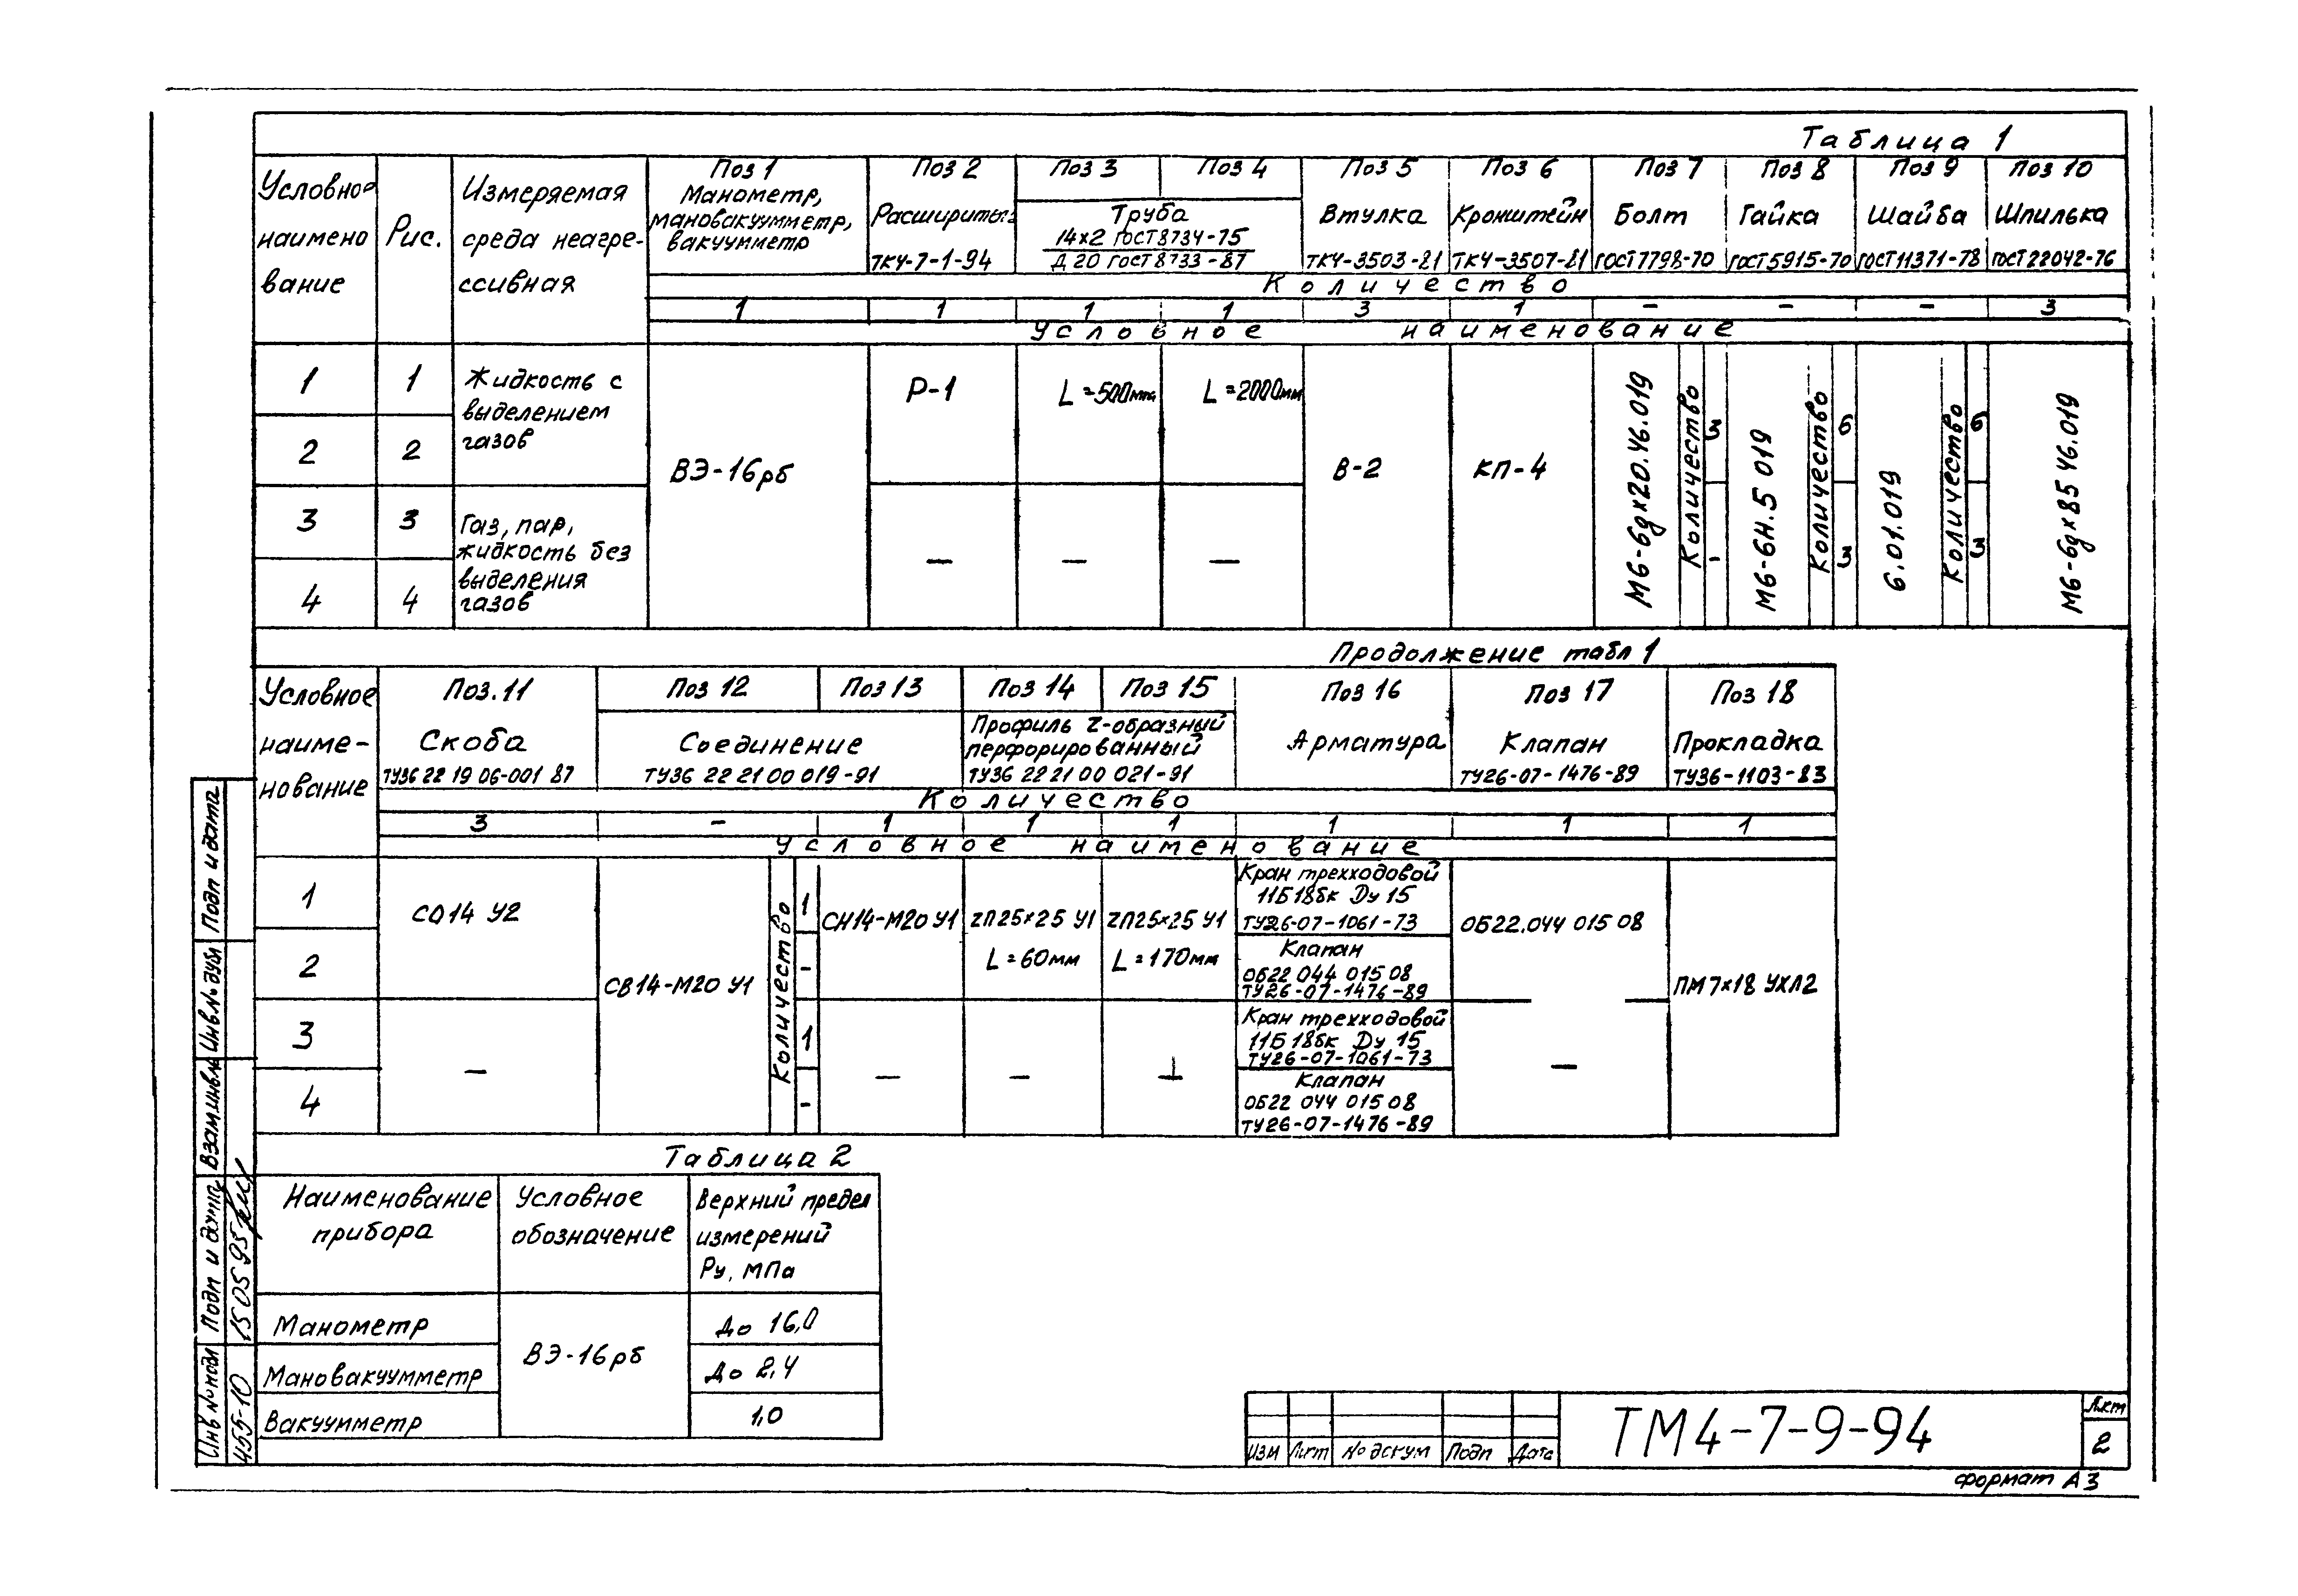 Таблица 1
Условное наимено вание
Рис.
Измеряемая среда неагре- ссивная
Поз 1 Манометр, мановакуумметр, вакуумметр
Поз 2 Расширитель ТК4-7-1-94
Поз 3 Поз 4
Труба 14х2 ГОСТ 8734-75
Д 20 ГОСТ 8733-87
Поз 5 Втулка ТК4-3503-81
Поз 6 Кронштейн ТК4-3507-81
Поз 7 Болт ГОСТ 7798-70
Поз 8 Гайка ГОСТ 5915-70
Поз 9 Шайба ГОСТ 11371-78
Поз 10 Шпилька ГОСТ 22042-76
Количество
1 1 1 1 3 1 - - - 3
Условное наименование
1 1
2 2
Жидкость с
выделением
газов
3 3
4 4
Газ, пар,
жидкость без
выделения
газов
ВЭ-16рб
Р-1
L=500мм
L=2000мм
— — —
В-2
КП-4
М6-6gх20.46.019
Количество 3 -
М6-6Н.5 019
Количество 6 3
6.01.019
Количество 6 3
М6-6gх85 46.019
Продолжение табл 1
Условное
наиме-
нование
Поз. 11 Скоба ТУ36 22 19 06-001 87
Поз 12 Поз 13
Соединение
ТУ36 22 21 00 019-91
Поз 14 Поз 15
Профиль Z-образный
перфорированный
ТУ36 22 21 00 021-91
Поз 16 Арматура
Поз 17 Клапан ТУ26-07-1476-89
Поз 18 Прокладка ТУ36-1103-83
Количество
3 - 1 1 1 1 1 1
Условное наименование
1
2
3
4
СО14 У2
—
СВ14-М20 У1
Количество 1 - 1 -
СН14-М20 У1
—
ZП25х25 У1
L=60мм
—
ZП25х25 У1
L=170мм
—
Кран трехходовой
11Б18бк Ду 15
ТУ26-07-1061-73
Клапан
ОБ22 044 015 08
ТУ26-07-1476-89
Кран трехходовой
11Б18бк Ду 15
ТУ26-07-1061-73
Клапан
ОБ22 044 015 08
ТУ26-07-1476-89
ОБ22.044 015 08
—
ПМ 7х18 УХЛ2
Таблица 2
Наименование прибора
Условное обозначение
Верхний предел измерений Ру, МПа
Манометр До 16,0
ВЭ-16рб
Мановакуумметр До 2,4
Вакуумметр 1,0
Подп и дата
Инв.№ дубл
Взам.инв.№
Подп и дата
15 05 95
Инв № подл
455-10
Изм Лист № докум Подп Дата
ТМ4-7-9-94
Лист
2
формат А3